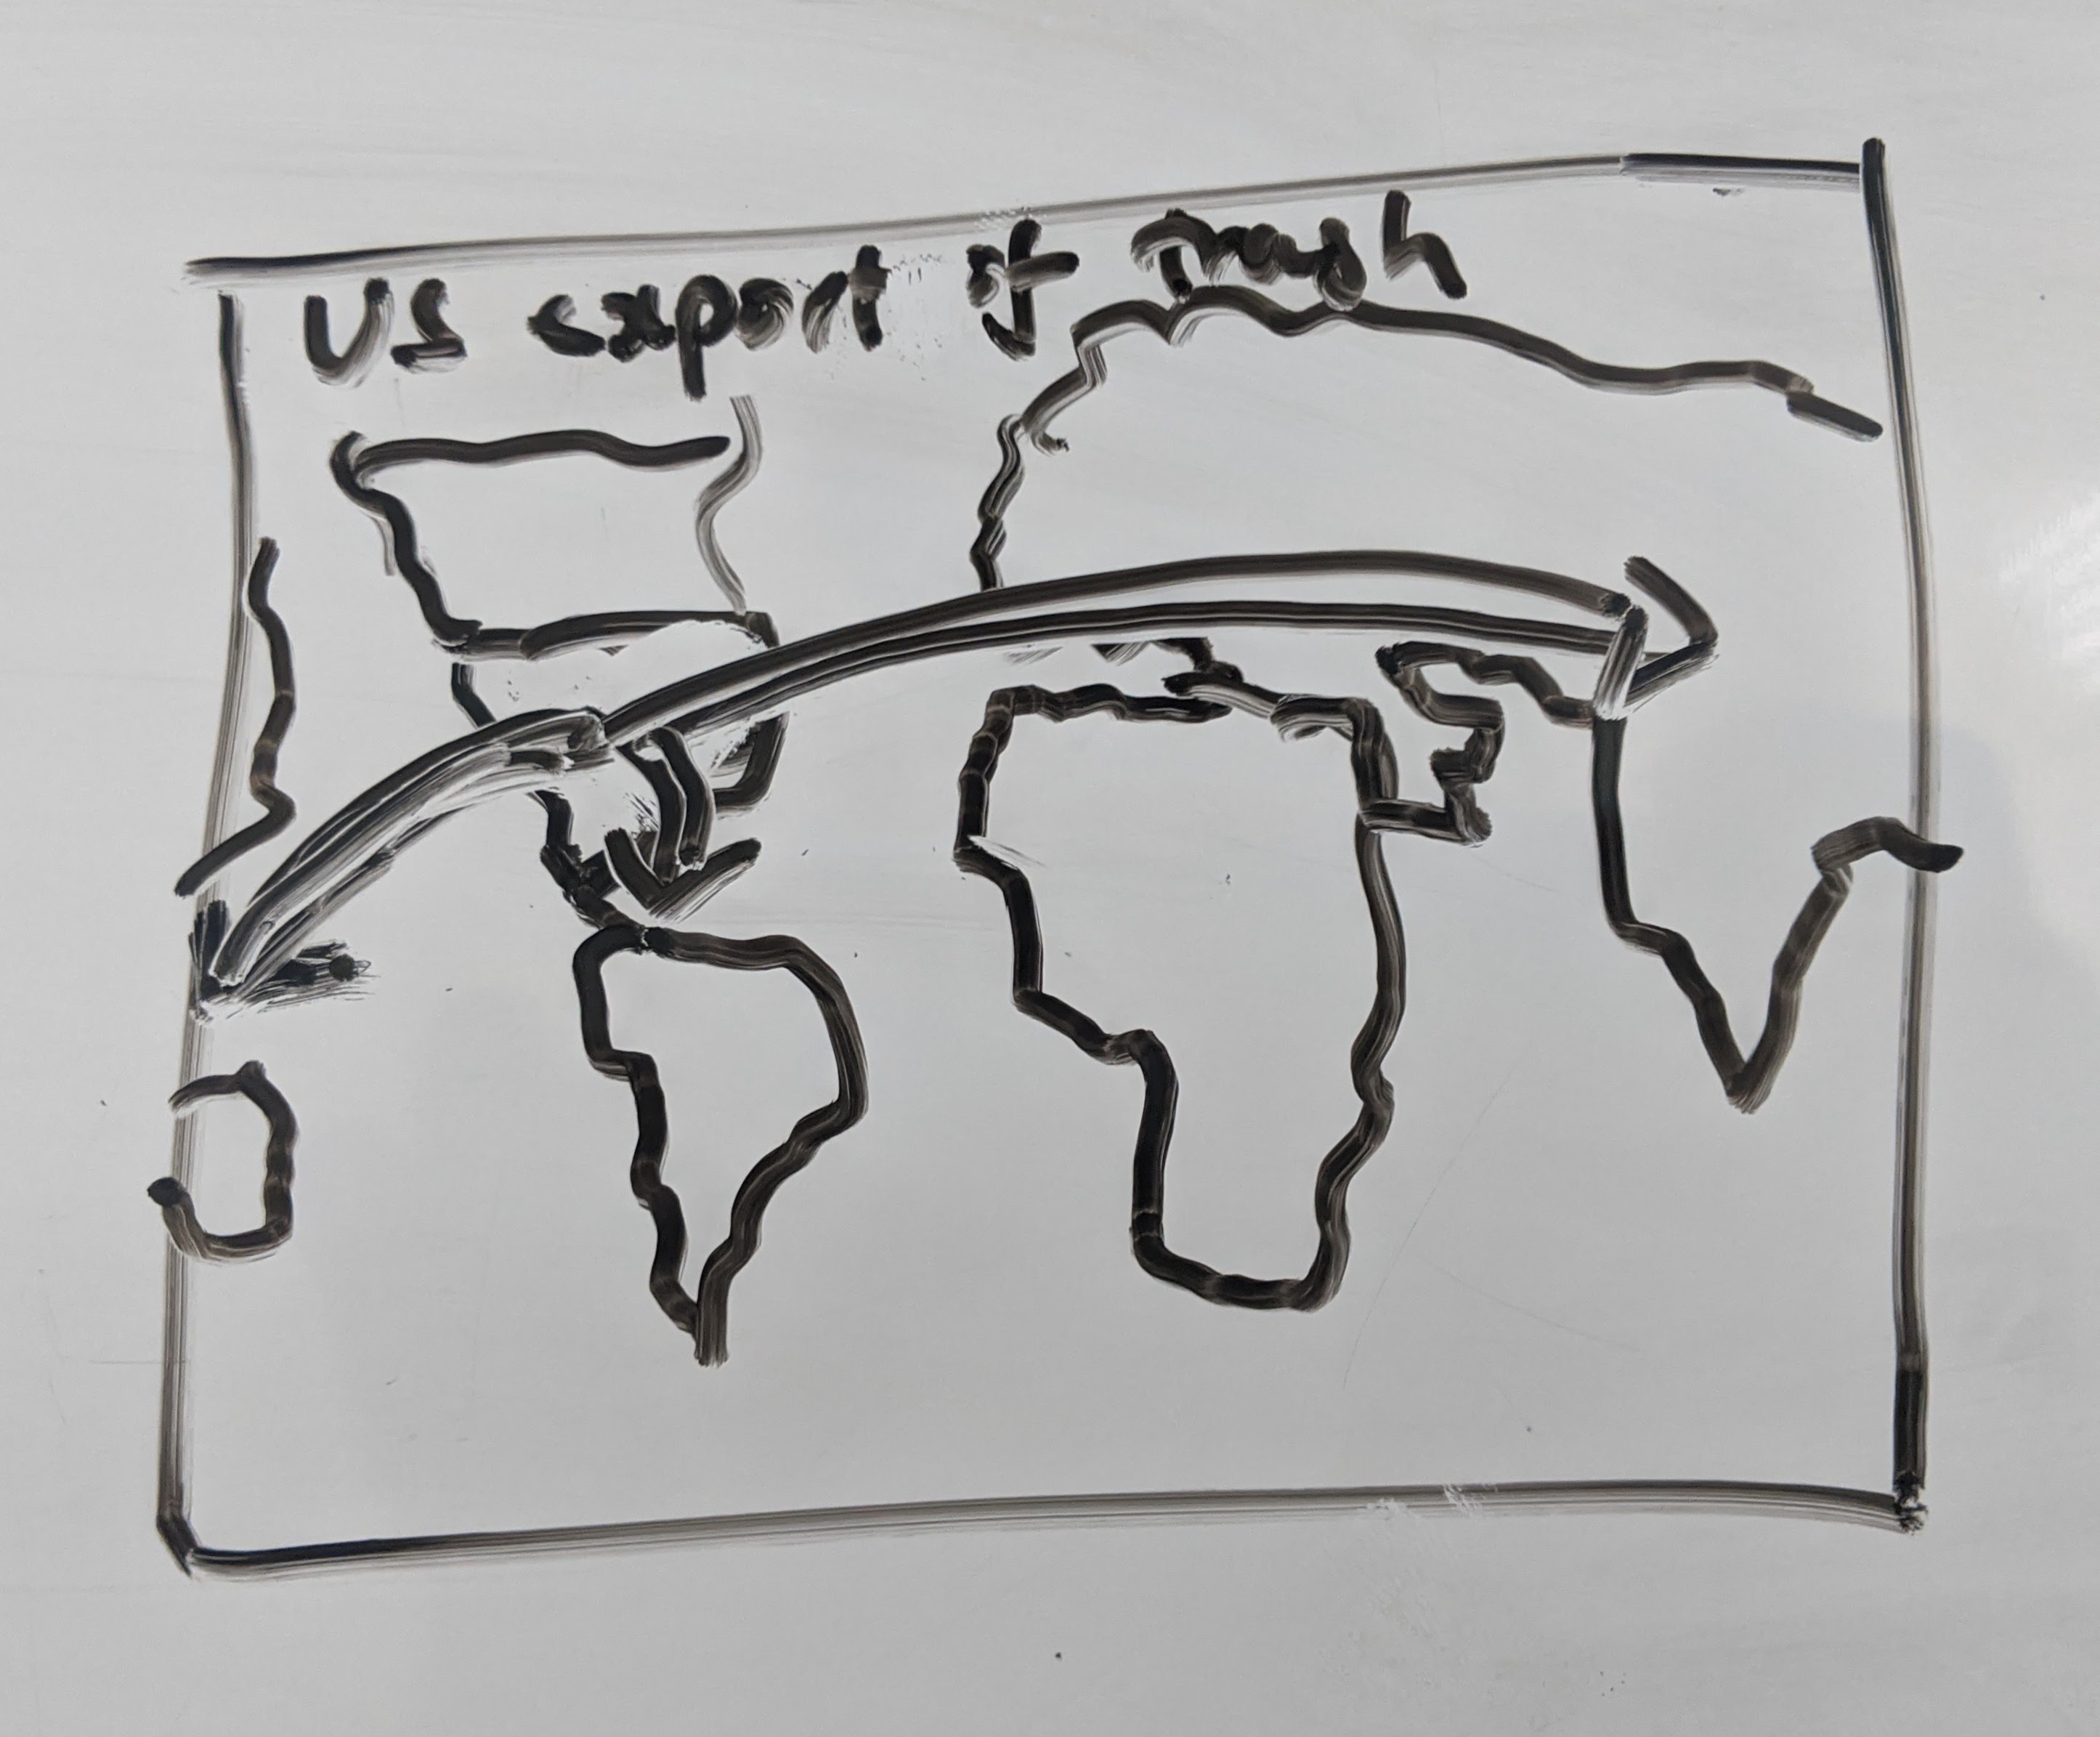 US export of Trash